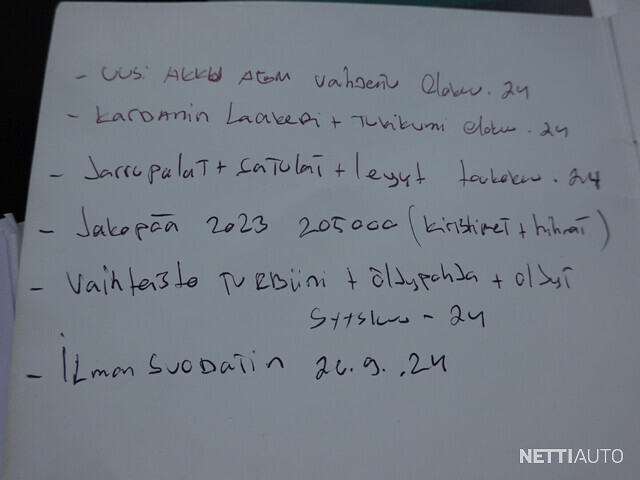 - UUSi AKKU AGM vaihdettu Eloku. 24
- KARDANin LAAKERi + TUKIKUMI eloku. 24
- Jarrupalat + SATULAT + levyt toukoku. 24
- Jakopää 2023 205000 (kiristimet + hihnat)
- Vaihteisto TURBiini + öljypohja + öljyt
Syysku - 24
- İLman SUODATin 26.9.24
NETTIAUTO